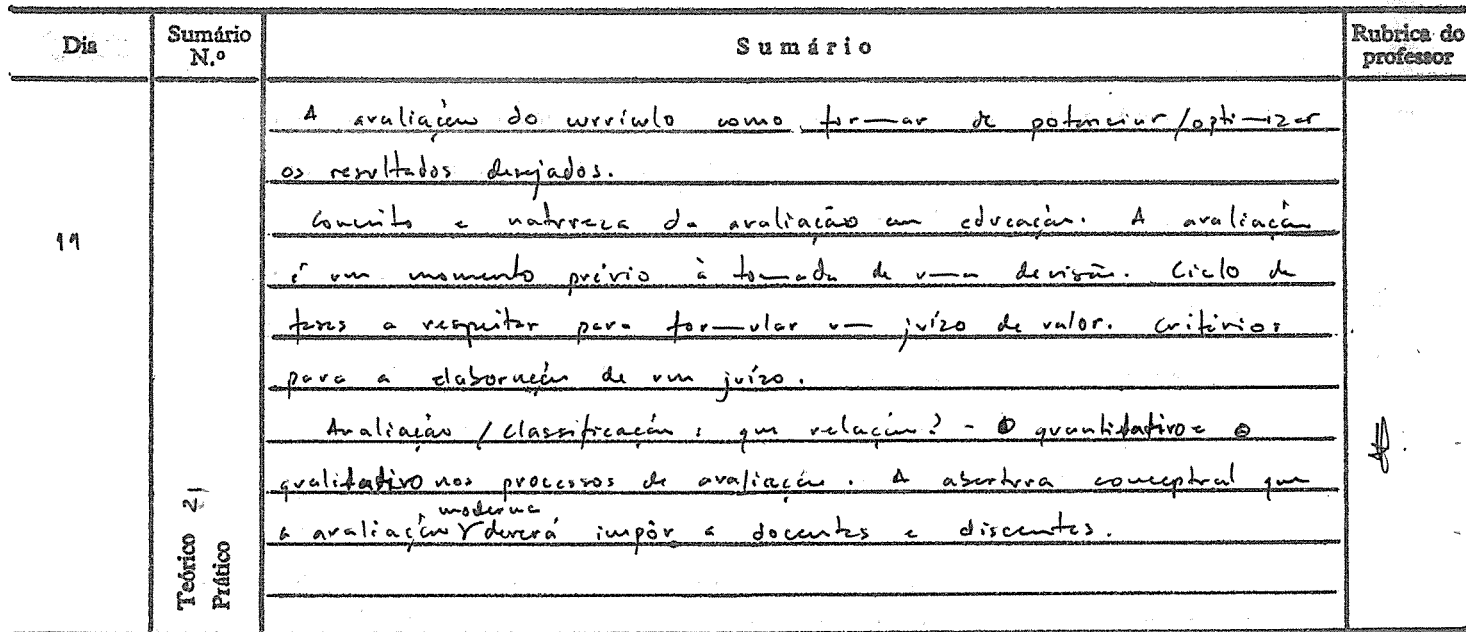 Dia
Sumário
N.º
Sumário
Rubrica do
professor
A avaliação do currículo como formar de potenciar/optimizar
os resultados desejados.
Conceito e natureza da avaliação em educação. A avaliação
é um momento prévio à tomada de uma decisão. Ciclo de
fases a respeitar para formular um juízo de valor. Critérios
para a elaboração de um juízo.
11
Avaliação / Classificação: que relação? - O quantitativo e o
qualitativo nos processos de avaliação. A abertura conceptual que
moderna
a avaliação deverá impôr a docentes e discentes.
Teórico 21
Prático